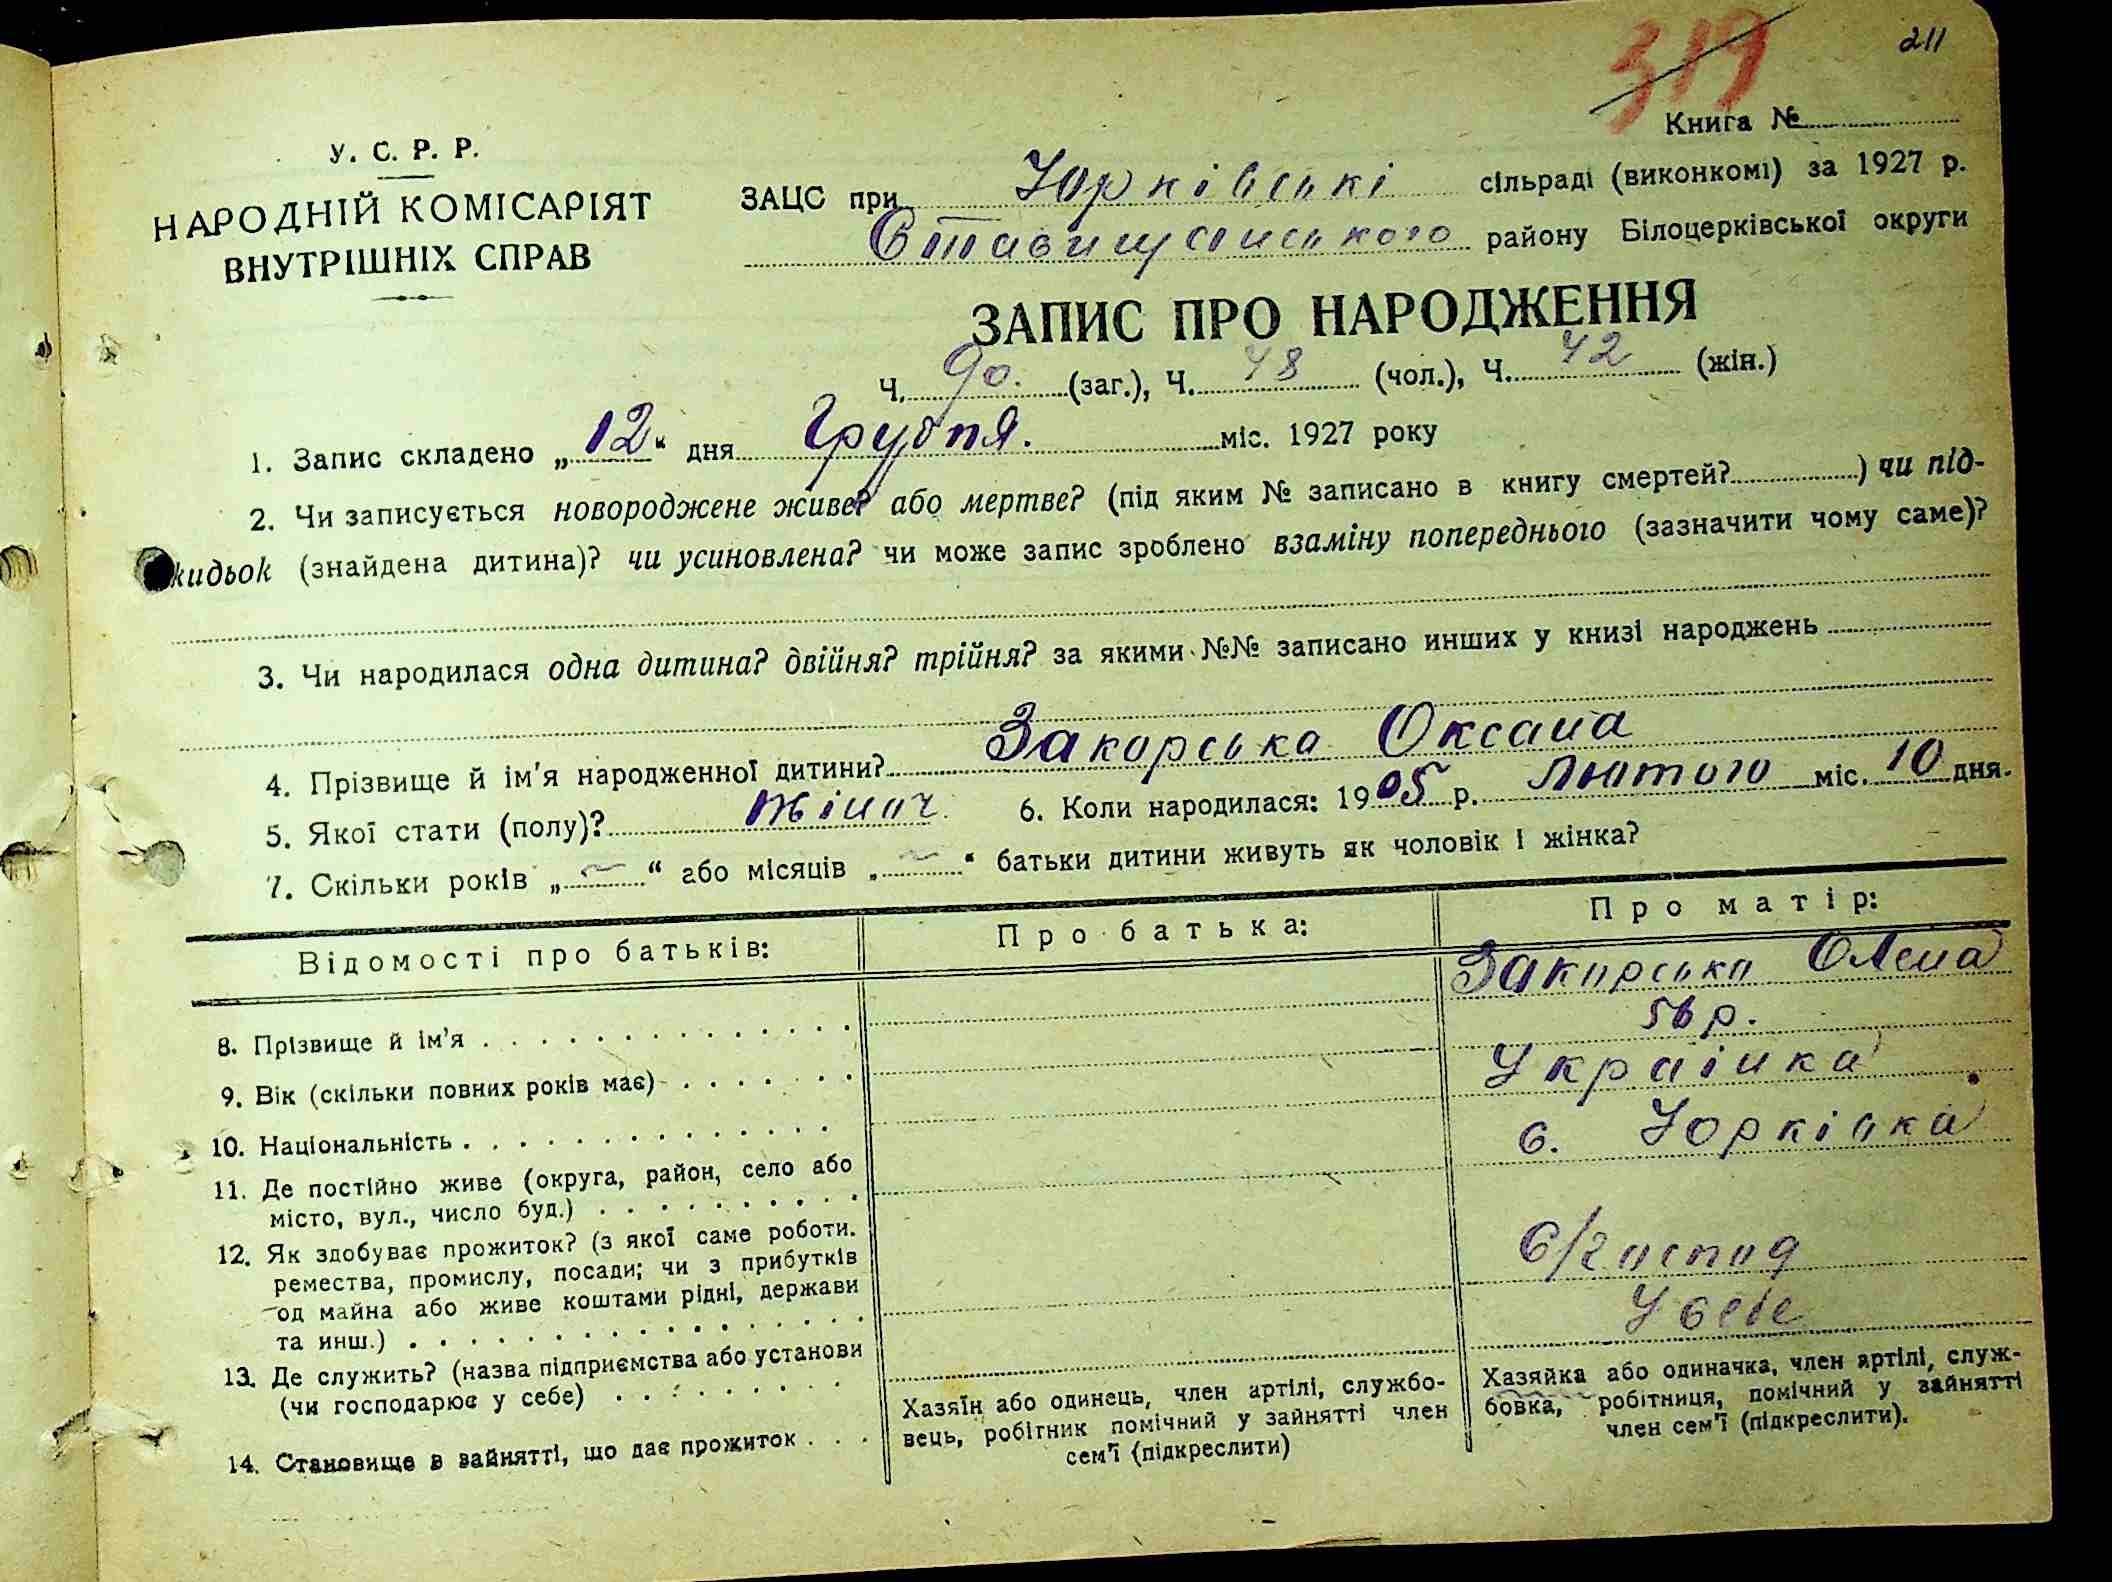 319
211
Книга №
У. С. Р. Р.
НАРОДНІЙ КОМІСАРІЯТ
ВНУТРІШНІХ СПРАВ
ЗАЦС при Юрківські сільраді (виконкомі) за 1927 р.
Ставищанського району Білоцерківської округи
ЗАПИС ПРО НАРОДЖЕННЯ
Ч. 90. (заг.), Ч. 48 (чол.), Ч. 42 (жін.)
1. Запис складено „12“ дня Грудня. міс. 1927 року
2. Чи записується новороджене живе? або мертве? (під яким № записано в книгу смертей? ) чи під-
кидьок (знайдена дитина)? чи усиновлена? чи може запис зроблено взаміну попереднього (зазначити чому саме)?
3. Чи народилася одна дитина? двійня? трійня? за якими №№ записано инших у книзі народжень
4. Прізвище й ім'я народженної дитини? Закорська Оксана
5. Якої стати (полу)? жіноч. 6. Коли народилася: 1905 р. Лютого міс. 10 дня.
7. Скільки років „ “ або місяців „ “ батьки дитини живуть як чоловік і жінка?
Відомості про батьків: Про батька: Про матір:
8. Прізвище й ім'я Закорська Олена
9. Вік (скільки повних років має) 56 р.
10. Національність Українка
11. Де постійно живе (округа, район, село або
місто, вул., число буд.) с. Юрківка
12. Як здобуває прожиток? (з якої саме роботи.
ремества, промислу, посади; чи з прибутків
од майна або живе коштами рідні, держави
та инш.) С/господ
13. Де служить? (назва підприємства або установи
(чи господарює у себе) У себе
14. Становище в зайнятті, що дає прожиток
Хазяїн або одинець, член артілі, службо-
вець, робітник помічний у зайнятті член
сем'ї (підкреслити)
Хазяйка або одиначка, член артілі, служ-
бовка, робітниця, помічний у зайнятті
член сем'ї (підкреслити).